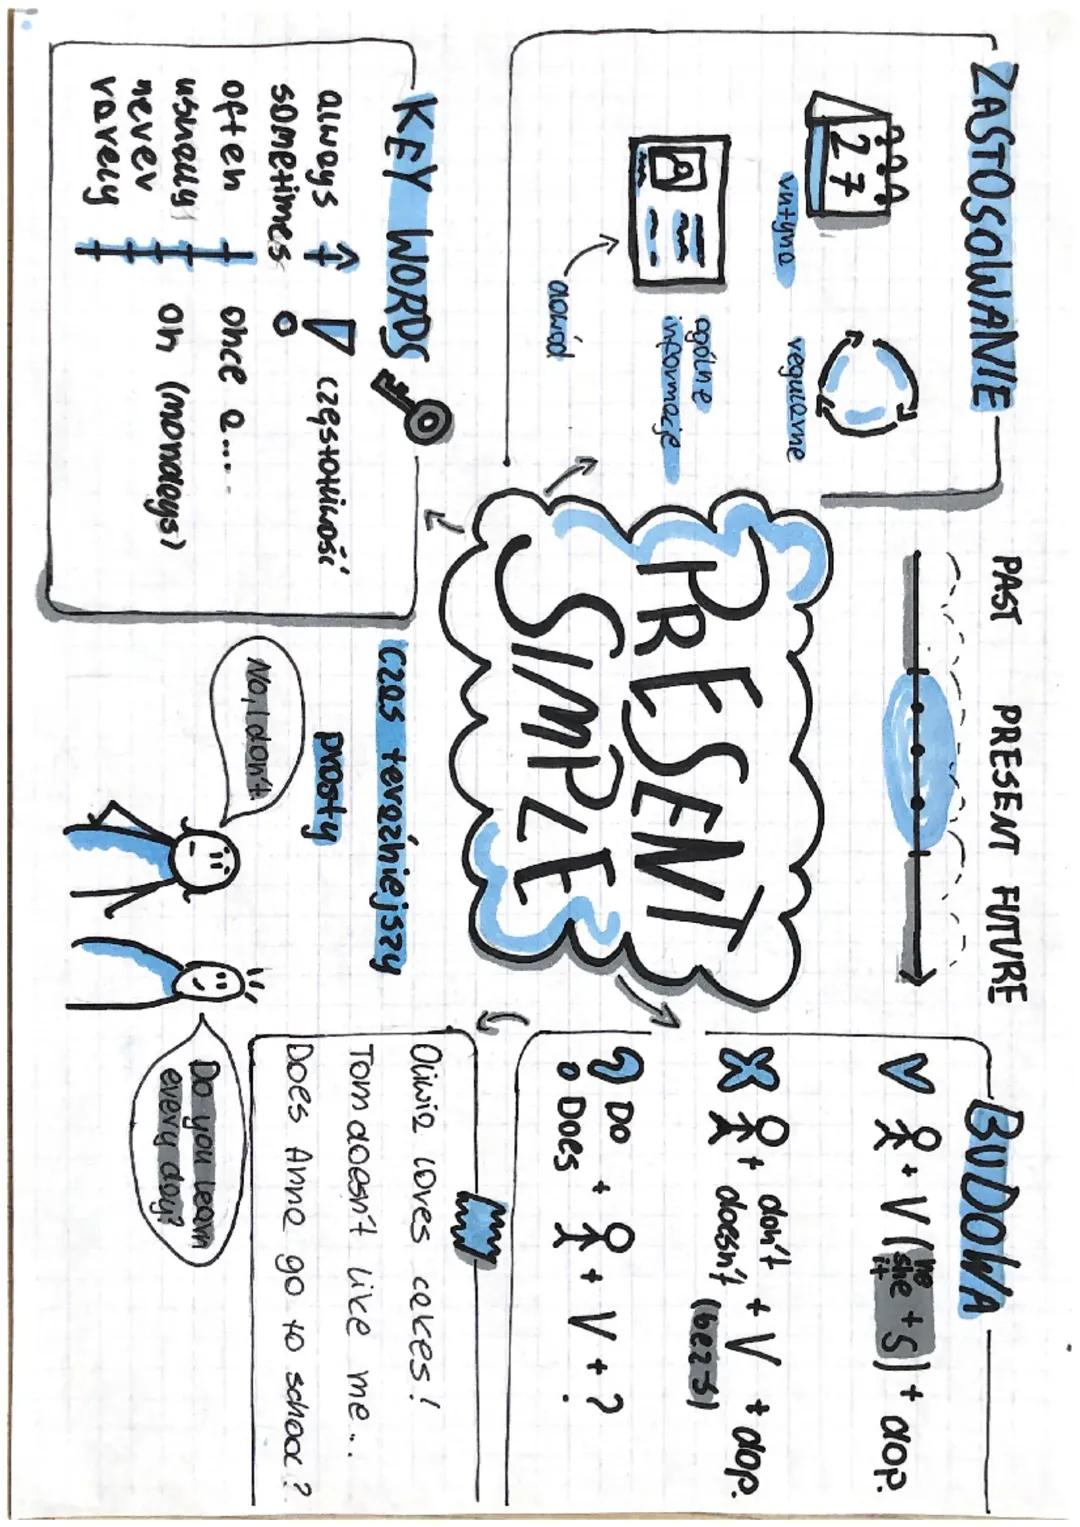 ZASTOSOWANIE
27
rutyna
regularne
ogólne
informacje
dowód
PAST PRESENT FUTURE
PRESENT
SIMPLE
BUDOWA
V + V (he she it + s) + dop.
X + don't doesn't + V + dop.
(bez s)
? Do Does + + V + ?
KEY WORDS
always
sometimes
often
usually
never
rarely
częstotliwość
once a...
on (mondays)
czas teraźniejszy
prosty
No, I don't.
Do you learn
every day?
Oliwia loves cakes!
Tom doesn't like me...
Does Anna go to school?